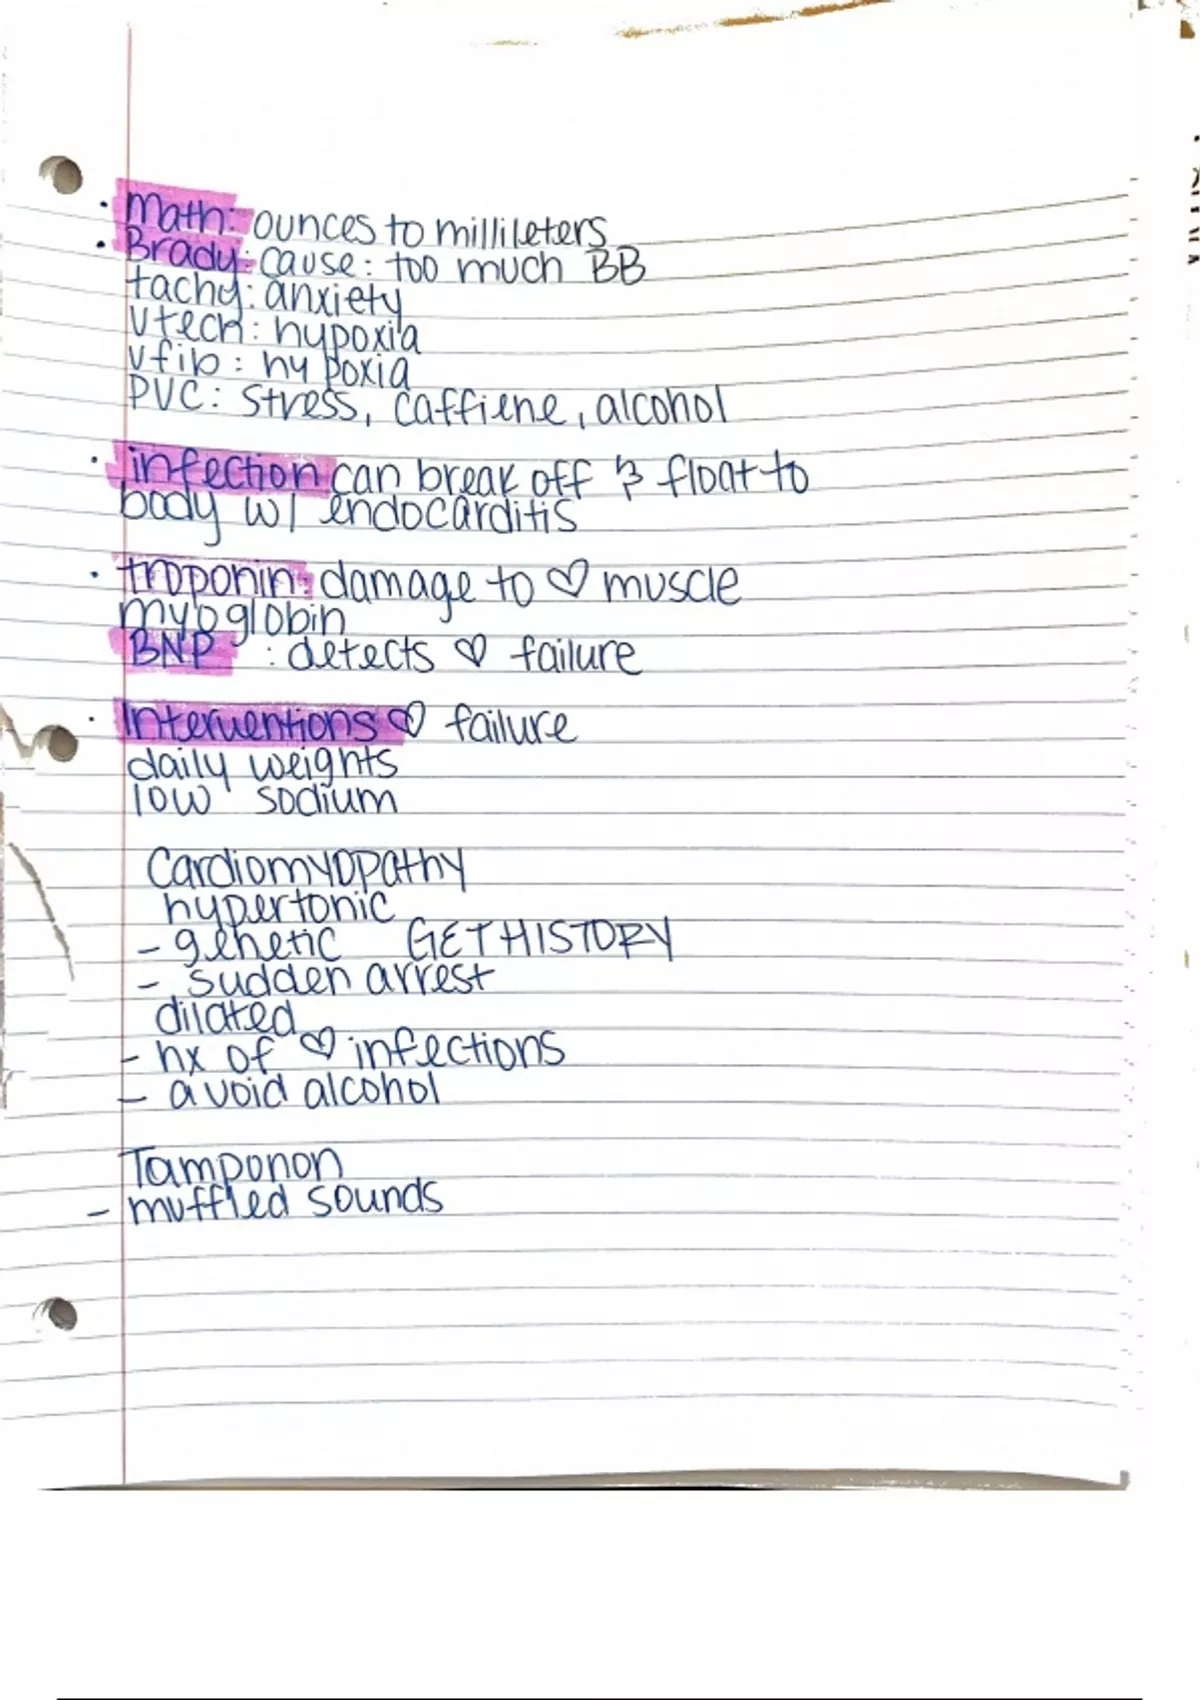 · Math: ounces to millileters
· Brady: cause: too much BB
tachy: anxiety
Vtech: hypoxia
vfib: hypoxia
PVC: stress, caffiene, alcohol
· infection can break off & float to
body w/ endocarditis
· troponin: damage to ♡ muscle
myoglobin
BNP : detects ♡ failure
· Interventions ♡ failure
daily weights
low sodium
Cardiomyopathy
hypertonic
- genetic GET HISTORY
- sudden arrest
dilated
- hx of ♡ infections
- avoid alcohol
Tamponon
- muffled sounds